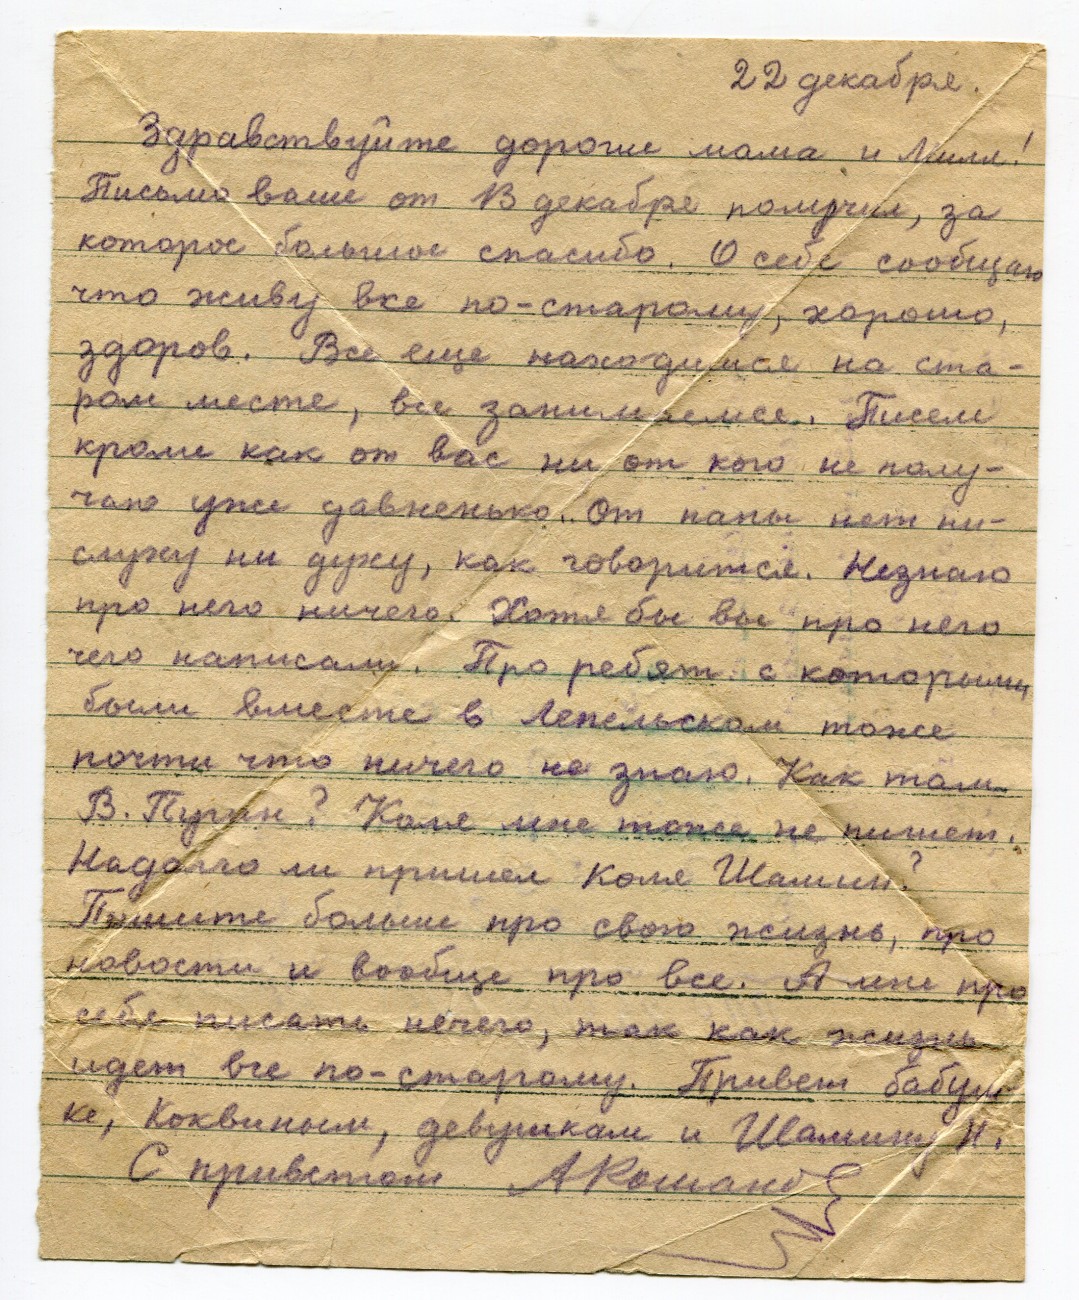 22 декабря.
Здравствуйте дорогие мама и Миля!
Письмо ваше от 13 декабря получил, за
которое большое спасибо. О себе сообщаю
что живу вке по-старому, хорошо,
здоров. Все еще находимся на ста-
ром месте, все занимаемся. Писем
кроме как от вас ни от кого не полу-
чаю уже давненько. От папы нет ни-
слуху ни духу, как говорится. Незнаю
про него ничего. Хотя бы вы про него
чего написали. Про ребят с которыми
были вместе в Лепельском тоже
почти что ничего не знаю. Как там
В. Пугин? Коля мне тоже не пишет.
Надолго ли пришел Коля Шамин?
Пишите больше про свою жизнь, про
новости и вообще про все. А мне про
себя писать нечего, так как жизнь
идет все по-старому. Привет бабуш-
ке, Коквиным, девушкам и Шамину Н.
С приветом АКошанов